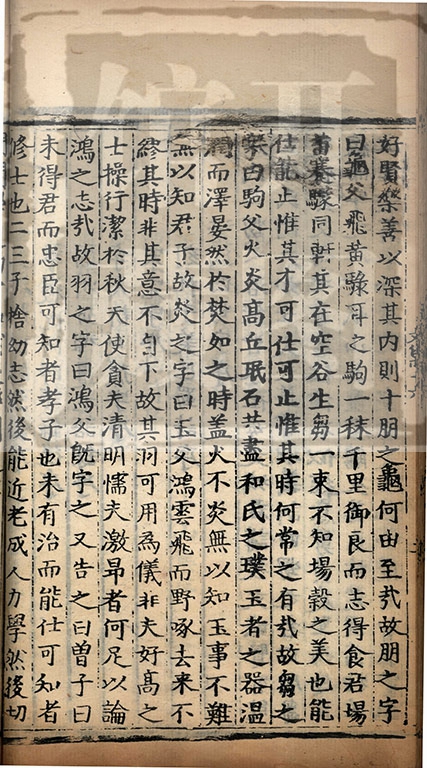 好賢樂善以深其内則十朋之龜何由至㢤故朋之字
曰龜父飛黄騄耳之駒一秣千里御良而志得食君場
苗蹇驥同軒其在空谷生芻一束不知場穀之美也能
仕能止惟其才可仕可止惟其時何常之有㢤故芻之
字曰白駒父火炎髙丘珉石共盡和氏之璞玉者之器温
潤而澤晏然於焚如之時盖火不炎無以知玉事不難
無以知君子故炎之字曰玉父鴻雲飛而野啄去來不
繆其時非其意不自下故其羽可用為儀非夫好髙之
士操行潔於秋天使貪夫清明懦夫激昻者何足以論
鴻之志㢤故羽之字曰鴻父旣字之又告之曰曽子曰
未得君而忠臣可知者孝子也未有治而能仕可知者
修士也二三子捨幼志然後能近老成人力學然後切